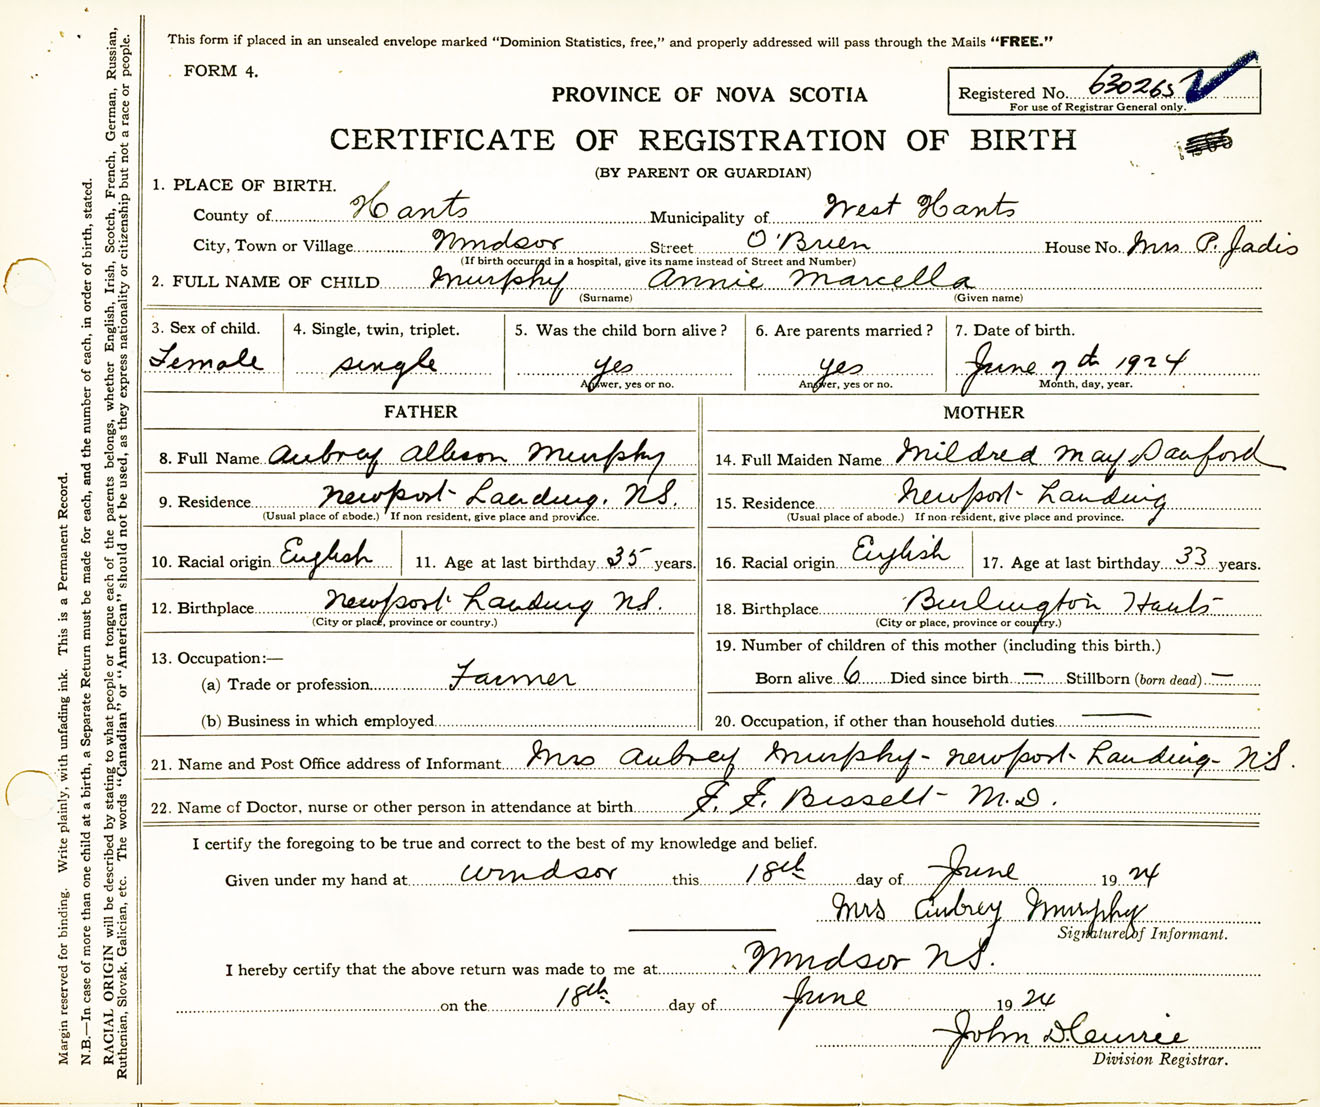 This form if placed in an unsealed envelope marked "Dominion Statistics, free," and properly addressed will pass through the Mails "FREE."
FORM 4.
Registered No. 630265
For use of Registrar General only.
PROVINCE OF NOVA SCOTIA
CERTIFICATE OF REGISTRATION OF BIRTH
(BY PARENT OR GUARDIAN)
1. PLACE OF BIRTH.
County of Hants Municipality of West Hants
City, Town or Village Windsor Street O'Brien House No. Mrs P. Jadis
(If birth occurred in a hospital, give its name instead of Street and Number)
2. FULL NAME OF CHILD Murphy Annie Marcella
(Surname) (Given name)
3. Sex of child. 4. Single, twin, triplet. 5. Was the child born alive? 6. Are parents married? 7. Date of birth.
Female single yes yes June 7th 1924
Answer, yes or no. Answer, yes or no. Month, day, year.
FATHER MOTHER
8. Full Name Aubrey Allison Murphy 14. Full Maiden Name Mildred May Sanford
9. Residence Newport Landing. N.S. 15. Residence Newport Landing
(Usual place of abode.) If non resident, give place and province. (Usual place of abode.) If non resident, give place and province.
10. Racial origin English 11. Age at last birthday 35 years. 16. Racial origin English 17. Age at last birthday 33 years.
12. Birthplace Newport Landing N.S. 18. Birthplace Burlington Hants
(City or place, province or country.) (City or place, province or country.)
13. Occupation:— 19. Number of children of this mother (including this birth.)
(a) Trade or profession Farmer Born alive 6 Died since birth — Stillborn (born dead) —
(b) Business in which employed 20. Occupation, if other than household duties —
21. Name and Post Office address of Informant Mrs Aubrey Murphy - Newport Landing - N.S.
22. Name of Doctor, nurse or other person in attendance at birth F. F. Bissett - M.D.
I certify the foregoing to be true and correct to the best of my knowledge and belief.
Given under my hand at Windsor this 18th day of June 1924
Mrs Aubrey Murphy
Signature of Informant.
I hereby certify that the above return was made to me at Windsor N.S.
on the 18th day of June 1924
John D. Currie
Division Registrar.
Margin reserved for binding. Write plainly, with unfading ink. This is a Permanent Record.
N.B.—In case of more than one child at a birth, a Separate Return must be made for each, and the number of each, in order of birth, stated.
RACIAL ORIGIN will be described by stating to what people or tongue each of the parents belongs, whether English, Irish, Scotch, French, German, Russian,
Ruthenian, Slovak, Galician, etc. The words "Canadian" or "American" should not be used, as they express nationality or citizenship but not a race or people.